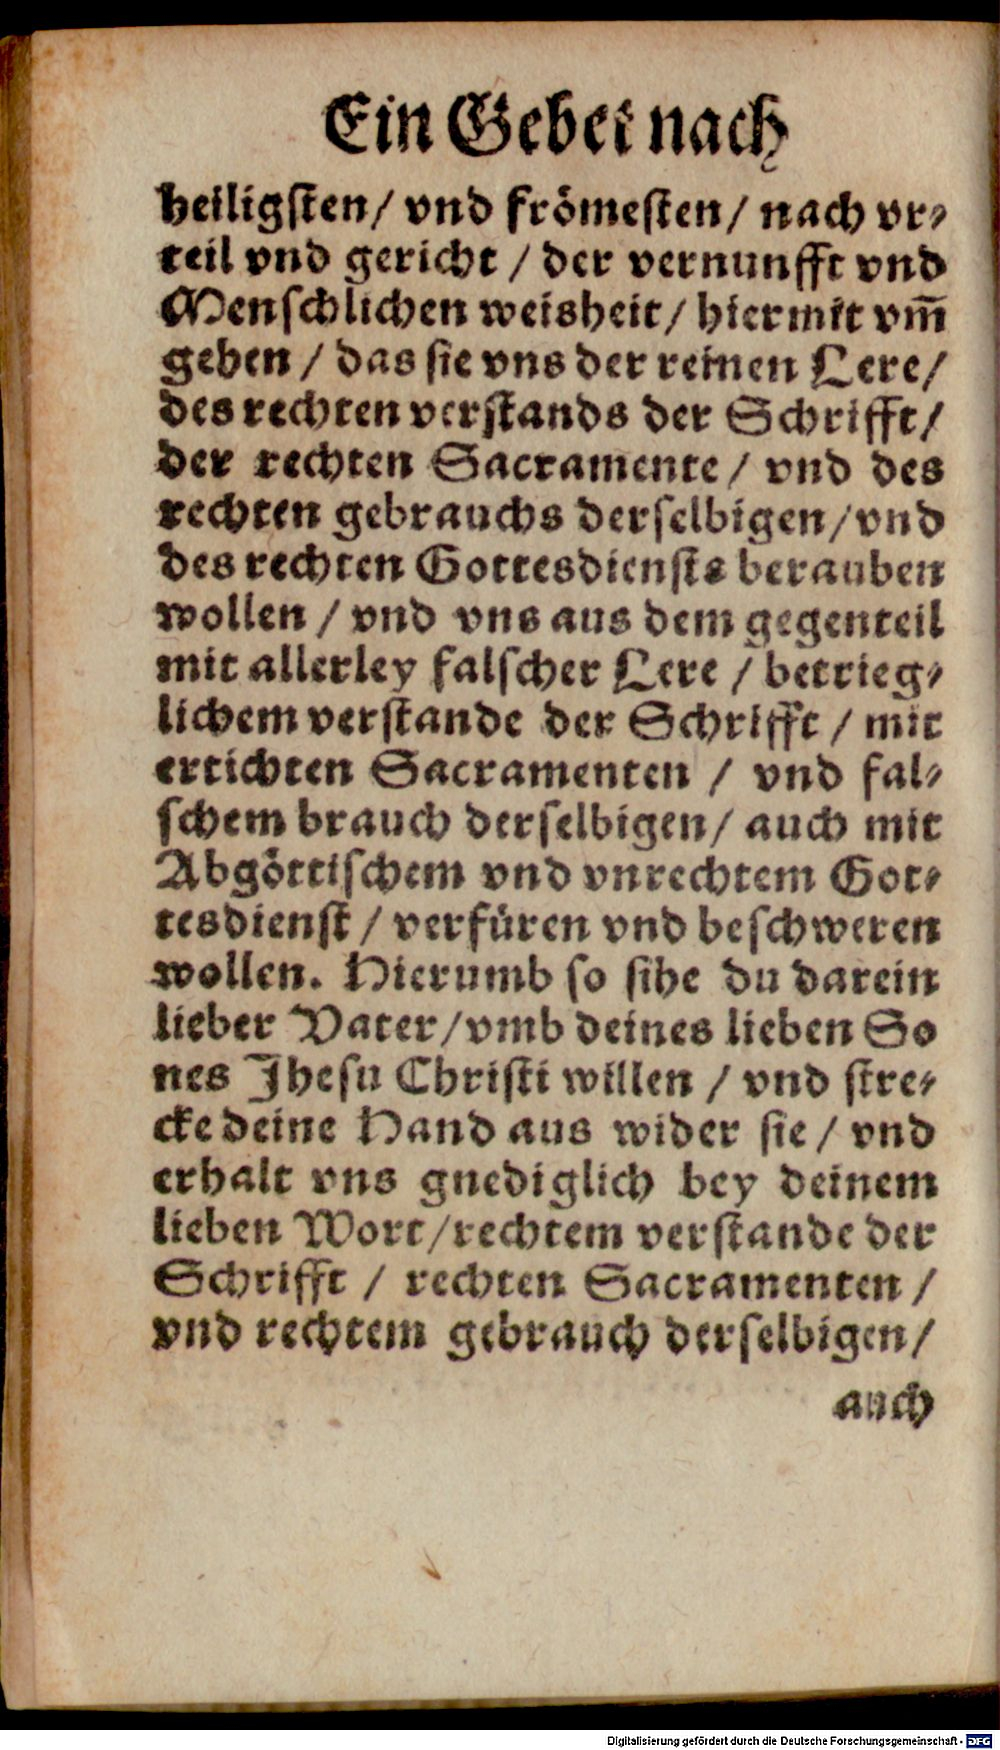 Ein Gebet nach
heiligsten/ vnd frömesten/ nach vr⸗
teil vnd gericht / der vernunfft vnd
Menschlichen weisheit/ hiermit vm̃
gehen / das sie vns der reinen Lere/
des rechten verstands der Schrifft/
der rechten Sacramente / vnd des
rechten gebrauchs derselbigen/vnd
des rechten Gottesdiensts berauben
wollen / vnd vns aus dem gegenteil
mit allerley falscher Lere / betrieg⸗
lichem verstande der Schrifft / mit
ertichten Sacramenten / vnd fal⸗
schem brauch derselbigen/ auch mit
Abgöttischem vnd vnrechtem Got⸗
tesdienst / verfüren vnd beschweren
wollen. Hierumb so sihe du darein
lieber Vater/vmb deines lieben So
nes Jhesu Christi willen / vnd stre⸗
cke deine Hand aus wider sie/ vnd
erhalt vns gnediglich bey deinem
lieben Wort/rechtem verstande der
Schrifft / rechten Sacramenten /
vnd rechtem gebrauch derselbigen/
auch
Digitalisierung gefördert durch die Deutsche Forschungsgemeinschaft - DFG